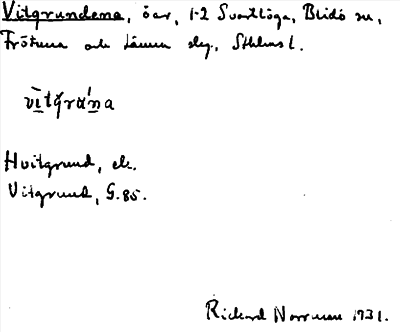 Vitgrundena, öar, 1-2 Svartlöga, Blidö sn,
Frötuna och Länna slg, Sthlms l.
vìtgrána
Hvitgrund, ek.
Vitgrund, G.85.
Rickard Norrman 1931.